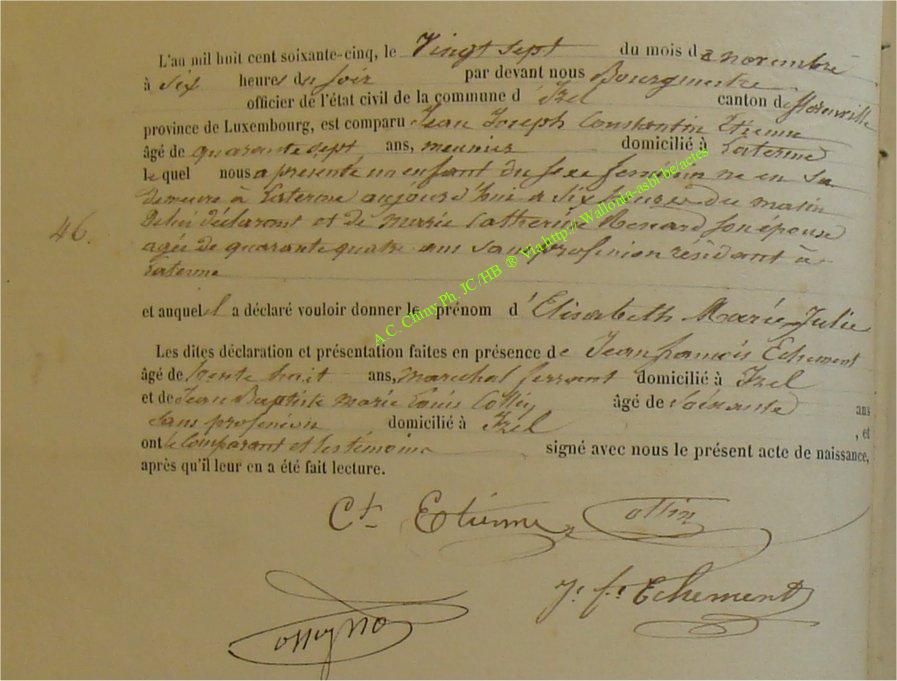 L'an mil huit cent soixante-cinq, le Vingt sept du mois de novembre
à six heures du soir par devant nous Bourgmestre
officier de l'état civil de la commune d'Izel canton de Florenville
province de Luxembourg, est comparu Jean Joseph Constantin Etienne
âgé de quarante sept ans, meunier domicilié à
le quel nous a présenté un enfant du sexe féminin né en sa
demeure à aujourd'hui à six heures du matin
de lui déclarant et de Marie Catherine son épouse
46. agée de quarante quatre ans sans profession résidant à
et auquel il a déclaré vouloir donner le prénom d'Elisabeth Marie Julie
Les dites déclaration et présentation faites en présence de Jean françois Echement
âgé de trente huit ans, marechal ferrant domicilié à Izel
et de Jean Baptiste Marie Louis Collin âgé de soixante ans
sans profession domicilié à Izel , et
ont le Comparant et les témoins signé avec nous le présent acte de naissance,
après qu'il leur en a été fait lecture.
Ct Etienne Collin
J. f. Echement
A.C. Chiny Ph. JC/HB ® Via http://Wallonia-asbl.be/actes